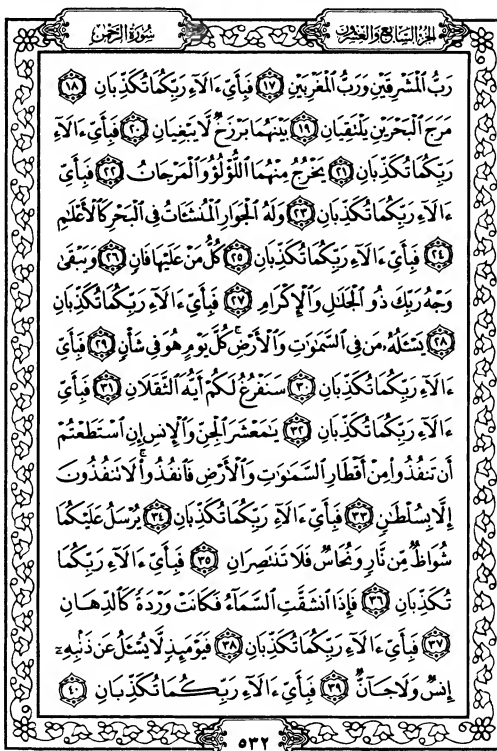 سُورَةُ الرَّحْمٰن
الجُزْءُ السَّابِعُ وَالعِشْرُونَ
رَبُّ ٱلْمَشْرِقَيْنِ وَرَبُّ ٱلْمَغْرِبَيْنِ ١٧ فَبِأَيِّ ءَالَآءِ رَبِّكُمَا تُكَذِّبَانِ ١٨
مَرَجَ ٱلْبَحْرَيْنِ يَلْتَقِيَانِ ١٩ بَيْنَهُمَا بَرْزَخٌ لَّا يَبْغِيَانِ ٢٠ فَبِأَيِّ ءَالَآءِ
رَبِّكُمَا تُكَذِّبَانِ ٢١ يَخْرُجُ مِنْهُمَا ٱللُّؤْلُؤُ وَٱلْمَرْجَانُ ٢٢ فَبِأَيِّ
ءَالَآءِ رَبِّكُمَا تُكَذِّبَانِ ٢٣ وَلَهُ ٱلْجَوَارِ ٱلْمُنشَـَٔاتُ فِى ٱلْبَحْرِ كَٱلْأَعْلَـٰمِ
٢٤ فَبِأَيِّ ءَالَآءِ رَبِّكُمَا تُكَذِّبَانِ ٢٥ كُلُّ مَنْ عَلَيْهَا فَانٍ ٢٦ وَيَبْقَىٰ
وَجْهُ رَبِّكَ ذُو ٱلْجَلَـٰلِ وَٱلْإِكْرَامِ ٢٧ فَبِأَيِّ ءَالَآءِ رَبِّكُمَا تُكَذِّبَانِ
٢٨ يَسْـَٔلُهُۥ مَن فِى ٱلسَّمَـٰوَٰتِ وَٱلْأَرْضِ ۚ كُلَّ يَوْمٍ هُوَ فِى شَأْنٍ ٢٩ فَبِأَيِّ
ءَالَآءِ رَبِّكُمَا تُكَذِّبَانِ ٣٠ سَنَفْرُغُ لَكُمْ أَيُّهَ ٱلثَّقَلَانِ ٣١ فَبِأَيِّ
ءَالَآءِ رَبِّكُمَا تُكَذِّبَانِ ٣٢ يَـٰمَعْشَرَ ٱلْجِنِّ وَٱلْإِنسِ إِنِ ٱسْتَطَعْتُمْ
أَن تَنفُذُوا۟ مِنْ أَقْطَارِ ٱلسَّمَـٰوَٰتِ وَٱلْأَرْضِ فَٱنفُذُوا۟ ۚ لَا تَنفُذُونَ
إِلَّا بِسُلْطَـٰنٍ ٣٣ فَبِأَيِّ ءَالَآءِ رَبِّكُمَا تُكَذِّبَانِ ٣٤ يُرْسَلُ عَلَيْكُمَا
شُوَاظٌ مِّن نَّارٍ وَنُحَاسٌ فَلَا تَنتَصِرَانِ ٣٥ فَبِأَيِّ ءَالَآءِ رَبِّكُمَا
تُكَذِّبَانِ ٣٦ فَإِذَا ٱنشَقَّتِ ٱلسَّمَآءُ فَكَانَتْ وَرْدَةً كَٱلدِّهَانِ
٣٧ فَبِأَيِّ ءَالَآءِ رَبِّكُمَا تُكَذِّبَانِ ٣٨ فَيَوْمَئِذٍ لَّا يُسْـَٔلُ عَن ذَنۢبِهِۦٓ
إِنسٌ وَلَا جَآنٌّ ٣٩ فَبِأَيِّ ءَالَآءِ رَبِّكُمَا تُكَذِّبَانِ ٤٠
٥٣٢